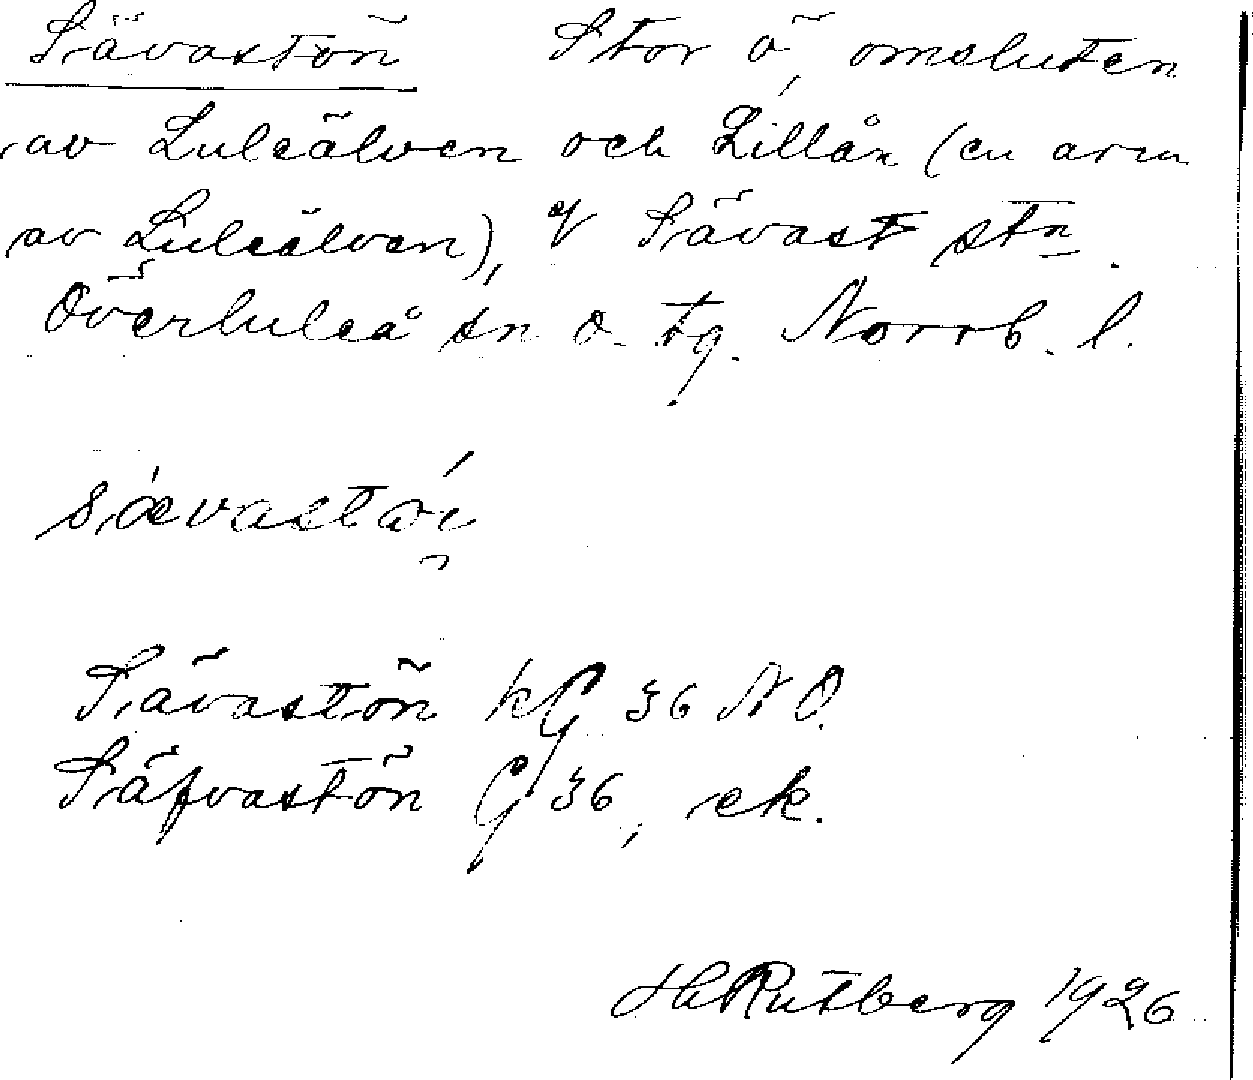 Sävastön Stor ö, omsluten
av Luleälven och Lillån (en arm
av Luleälven), Sävast stn.
Överluleå sn o. tg. Norrb. l.
Sävastön kG 36 NO.
Säfvastön G 36, ek.
H Rutberg 1926